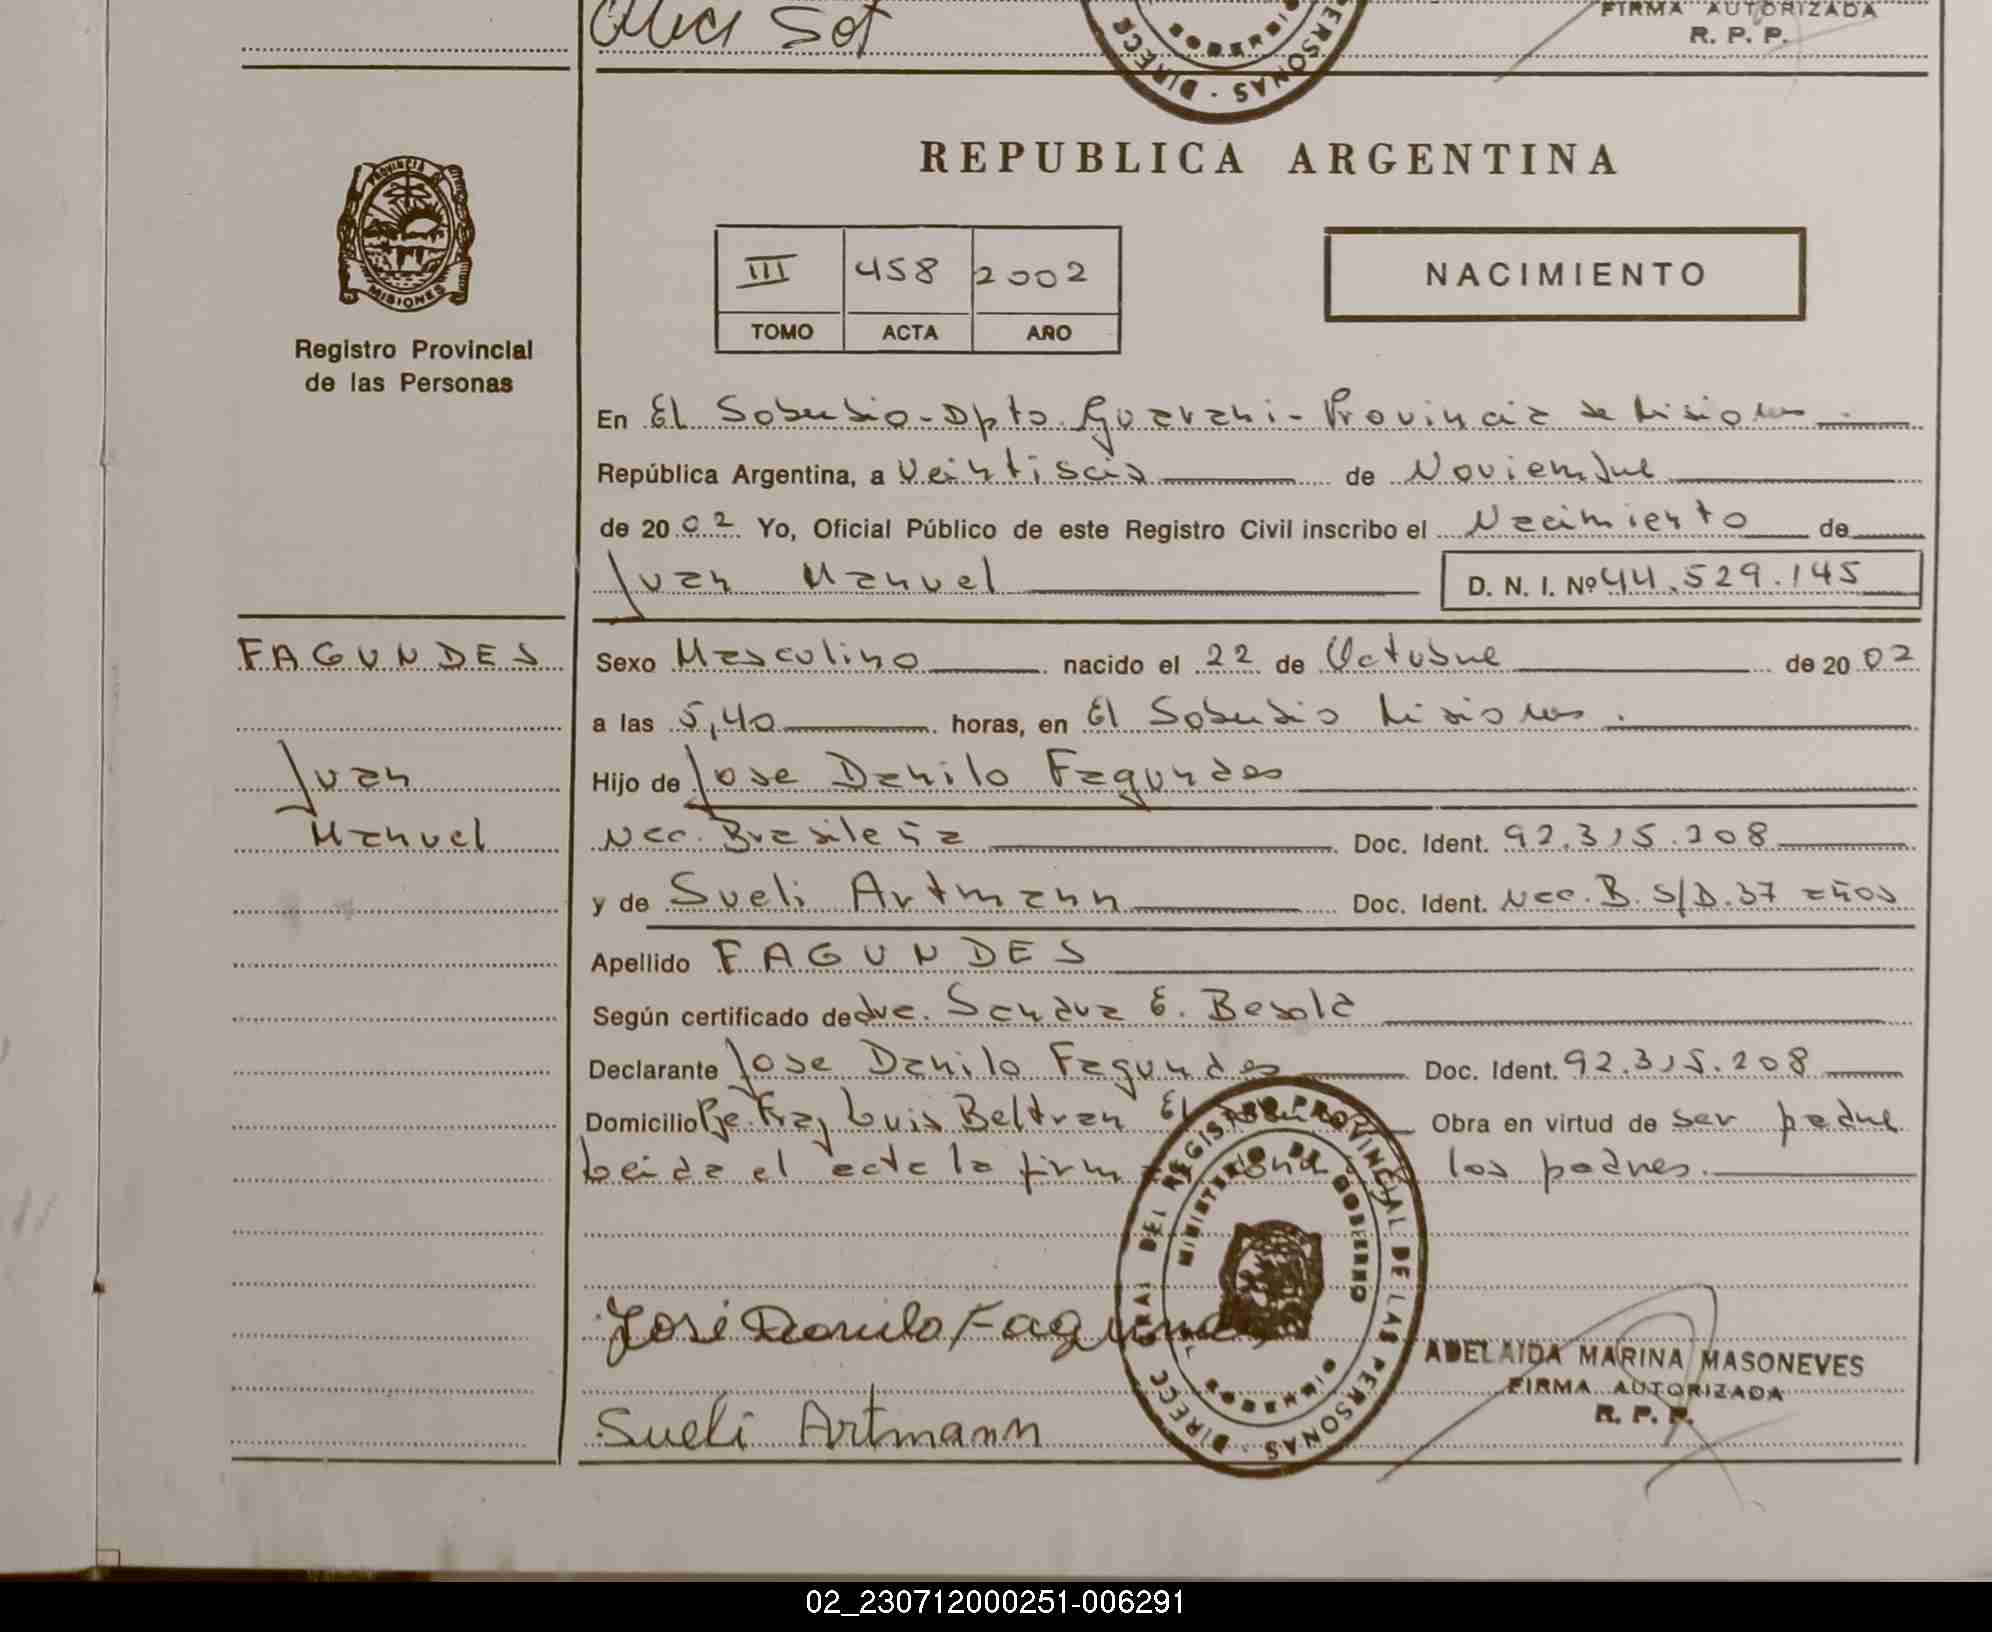 FIRMA AUTORIZADA
R. P. P.
PERSONAS - DIRECC
GOBIERNO
REPUBLICA ARGENTINA
PROVINCIA DE MISIONES
III 458 2002
TOMO ACTA AÑO
NACIMIENTO
Registro Provincial
de las Personas
En El Soberbio - Dpto. Guarani - Provincia de Misiones
República Argentina, a Veintiseis de Noviembre
de 20 02 Yo, Oficial Público de este Registro Civil inscribo el Nacimiento de
Juan Manuel D. N. I. Nº 44.529.145
FAGUNDES
Juan
Manuel
Sexo Masculino nacido el 22 de Octubre de 20 02
a las 5,40 horas, en El Soberbio Misiones.
Hijo de Jose Danilo Fagundes
Nac. Brasileña Doc. Ident. 92.315.208
y de Sueli Artmann Doc. Ident. Nac. B. S/D. 37 años
Apellido FAGUNDES
Según certificado de dra. Sandra E. Besold
Declarante Jose Danilo Fagundes Doc. Ident. 92.315.208
Domicilio Pje. Fray Luis Beltran El Obra en virtud de ser padre
Leida el acta la firm los padres.
DIRECC GRAL DEL REGISTRO PROVINCIAL DE LAS PERSONAS
MINISTERIO DE GOBIERNO
GOBIERNO
José Danilo Fagundes
ADELAIDA MARINA MASONEVES
FIRMA AUTORIZADA
R. P. P.
Sueli Artmann
02_230712000251-006291